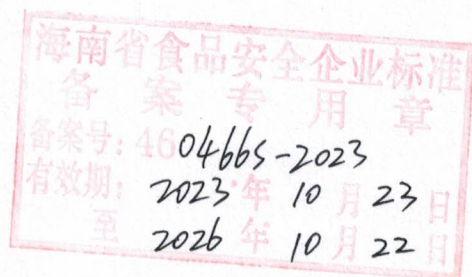 海南省食品安全企业标准
备案专用章
备案号：460466S-2023
有效期：2023年10月23日
至2026年10月22日